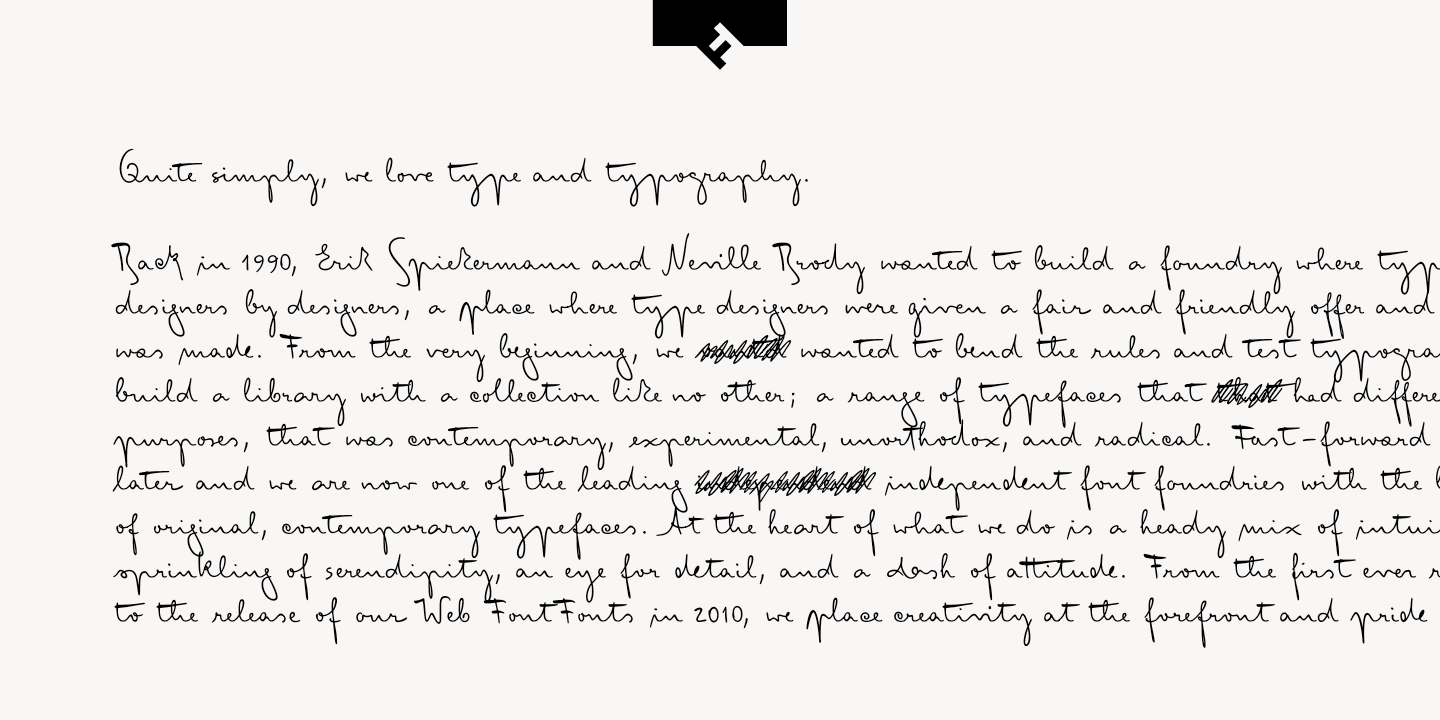 Quite simply, we love type and typography.
Back in 1990, Erik Spiekermann and Neville Brody wanted to build a foundry where typ
designers by designers, a place where type designers were given a fair and friendly offer and
was made. From the very beginning, we wanted to bend the rules and test typogra
build a library with a collection like no other; a range of typefaces that had differe
purposes, that was contemporary, experimental, unorthodox, and radical. Fast-forward
later and we are now one of the leading independent font foundries with the
of original, contemporary typefaces. At the heart of what we do is a heady mix of intui
sprinkling of serendipity, an eye for detail, and a dash of attitude. From the first ever
to the release of our Web FontFonts in 2010, we place creativity at the forefront and pride